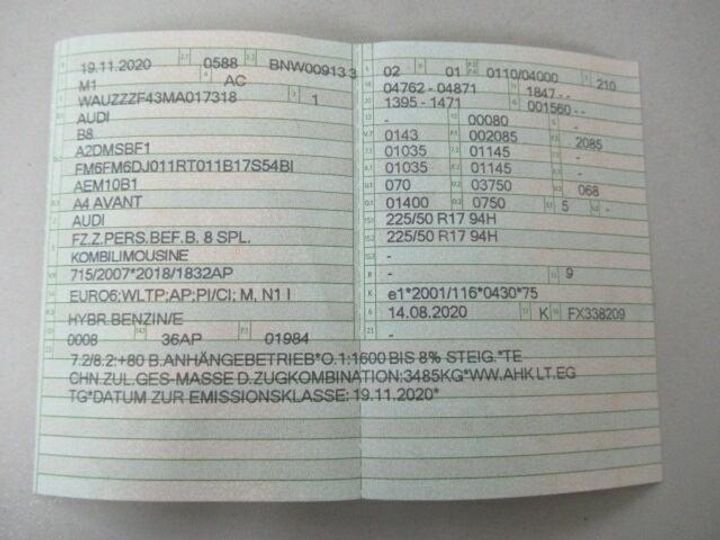 19.11.2020 0588 BNW009133
M1 AC
WAUZZZF43MA017318 1
AUDI
B8
A2DMSBF1
FM6FM6DJ011RT011B17S54BI
AEM10B1
A4 AVANT
AUDI
FZ.Z.PERS.BEF.B. 8 SPL.
KOMBILIMOUSINE
715/2007*2018/1832AP
EURO6;WLTP;AP;PI/CI; M, N1 I
HYBR.BENZIN/E
0008 36AP 01984
02 01 0110/04000 210
04762 - 04871 1847 - -
1395 - 1471 001560 - -
- 00080 -
0143 002085 2085
01035 01145 -
01035 01145 -
070 03750 068
01400 0750 5 -
225/50 R17 94H
225/50 R17 94H
-
- 9
e1*2001/116*0430*75
14.08.2020 K FX338209
-
7.2/8.2:+80 B.ANHÄNGEBETRIEB*O.1:1600 BIS 8% STEIG.*TE
CHN.ZUL.GES-MASSE D.ZUGKOMBINATION:3485KG*WW.AHK LT.EG
TG*DATUM ZUR EMISSIONSKLASSE: 19.11.2020*